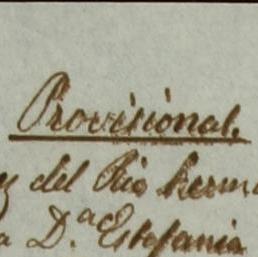 Provisional.
del Rio herm
a D.ª Estefania